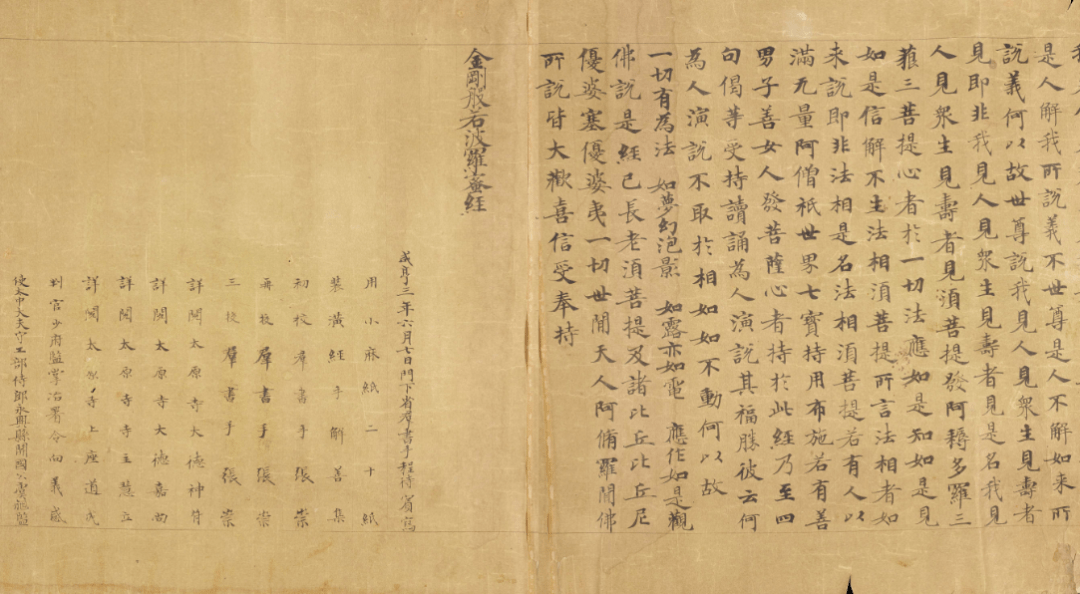 是人解我所說義不世尊是人不解如來所
說義何以故世尊說我見人見衆生見壽者
見即非我見人見衆生見壽者見是名我見
人見衆生見壽者見須菩提發阿耨多羅三
藐三菩提心者於一切法應如是知如是見
如是信解不生法相須菩提所言法相者如
来說即非法相是名法相須菩提若有人以
滿无量阿僧祇世界七寶持用布施若有善
男子善女人發菩薩心者持於此經乃至四
句偈等受持讀誦為人演說其福勝彼云何
為人演說不取於相如如不動何以故
一切有為法 如夢幻泡影 如露亦如電 應作如是觀
佛說是經已長老須菩提及諸比丘比丘尼
優婆塞優婆夷一切世間天人阿脩羅聞佛
所說皆大歡喜信受奉持
金剛般若波羅蜜經
咸亨三年六月七日門下省羣書手程待賓寫
用小麻紙二十紙
裝潢經手解善集
初校羣書手張崇
再校羣書手張崇
三校羣書手張崇
詳閱太原寺大德神符
詳閱太原寺大德嘉尚
詳閱太原寺寺主慧立
詳閱太原寺上座道成
判官少府監掌冶署令向義感
使太中大夫守工部侍郎永興縣開國公虞昶監